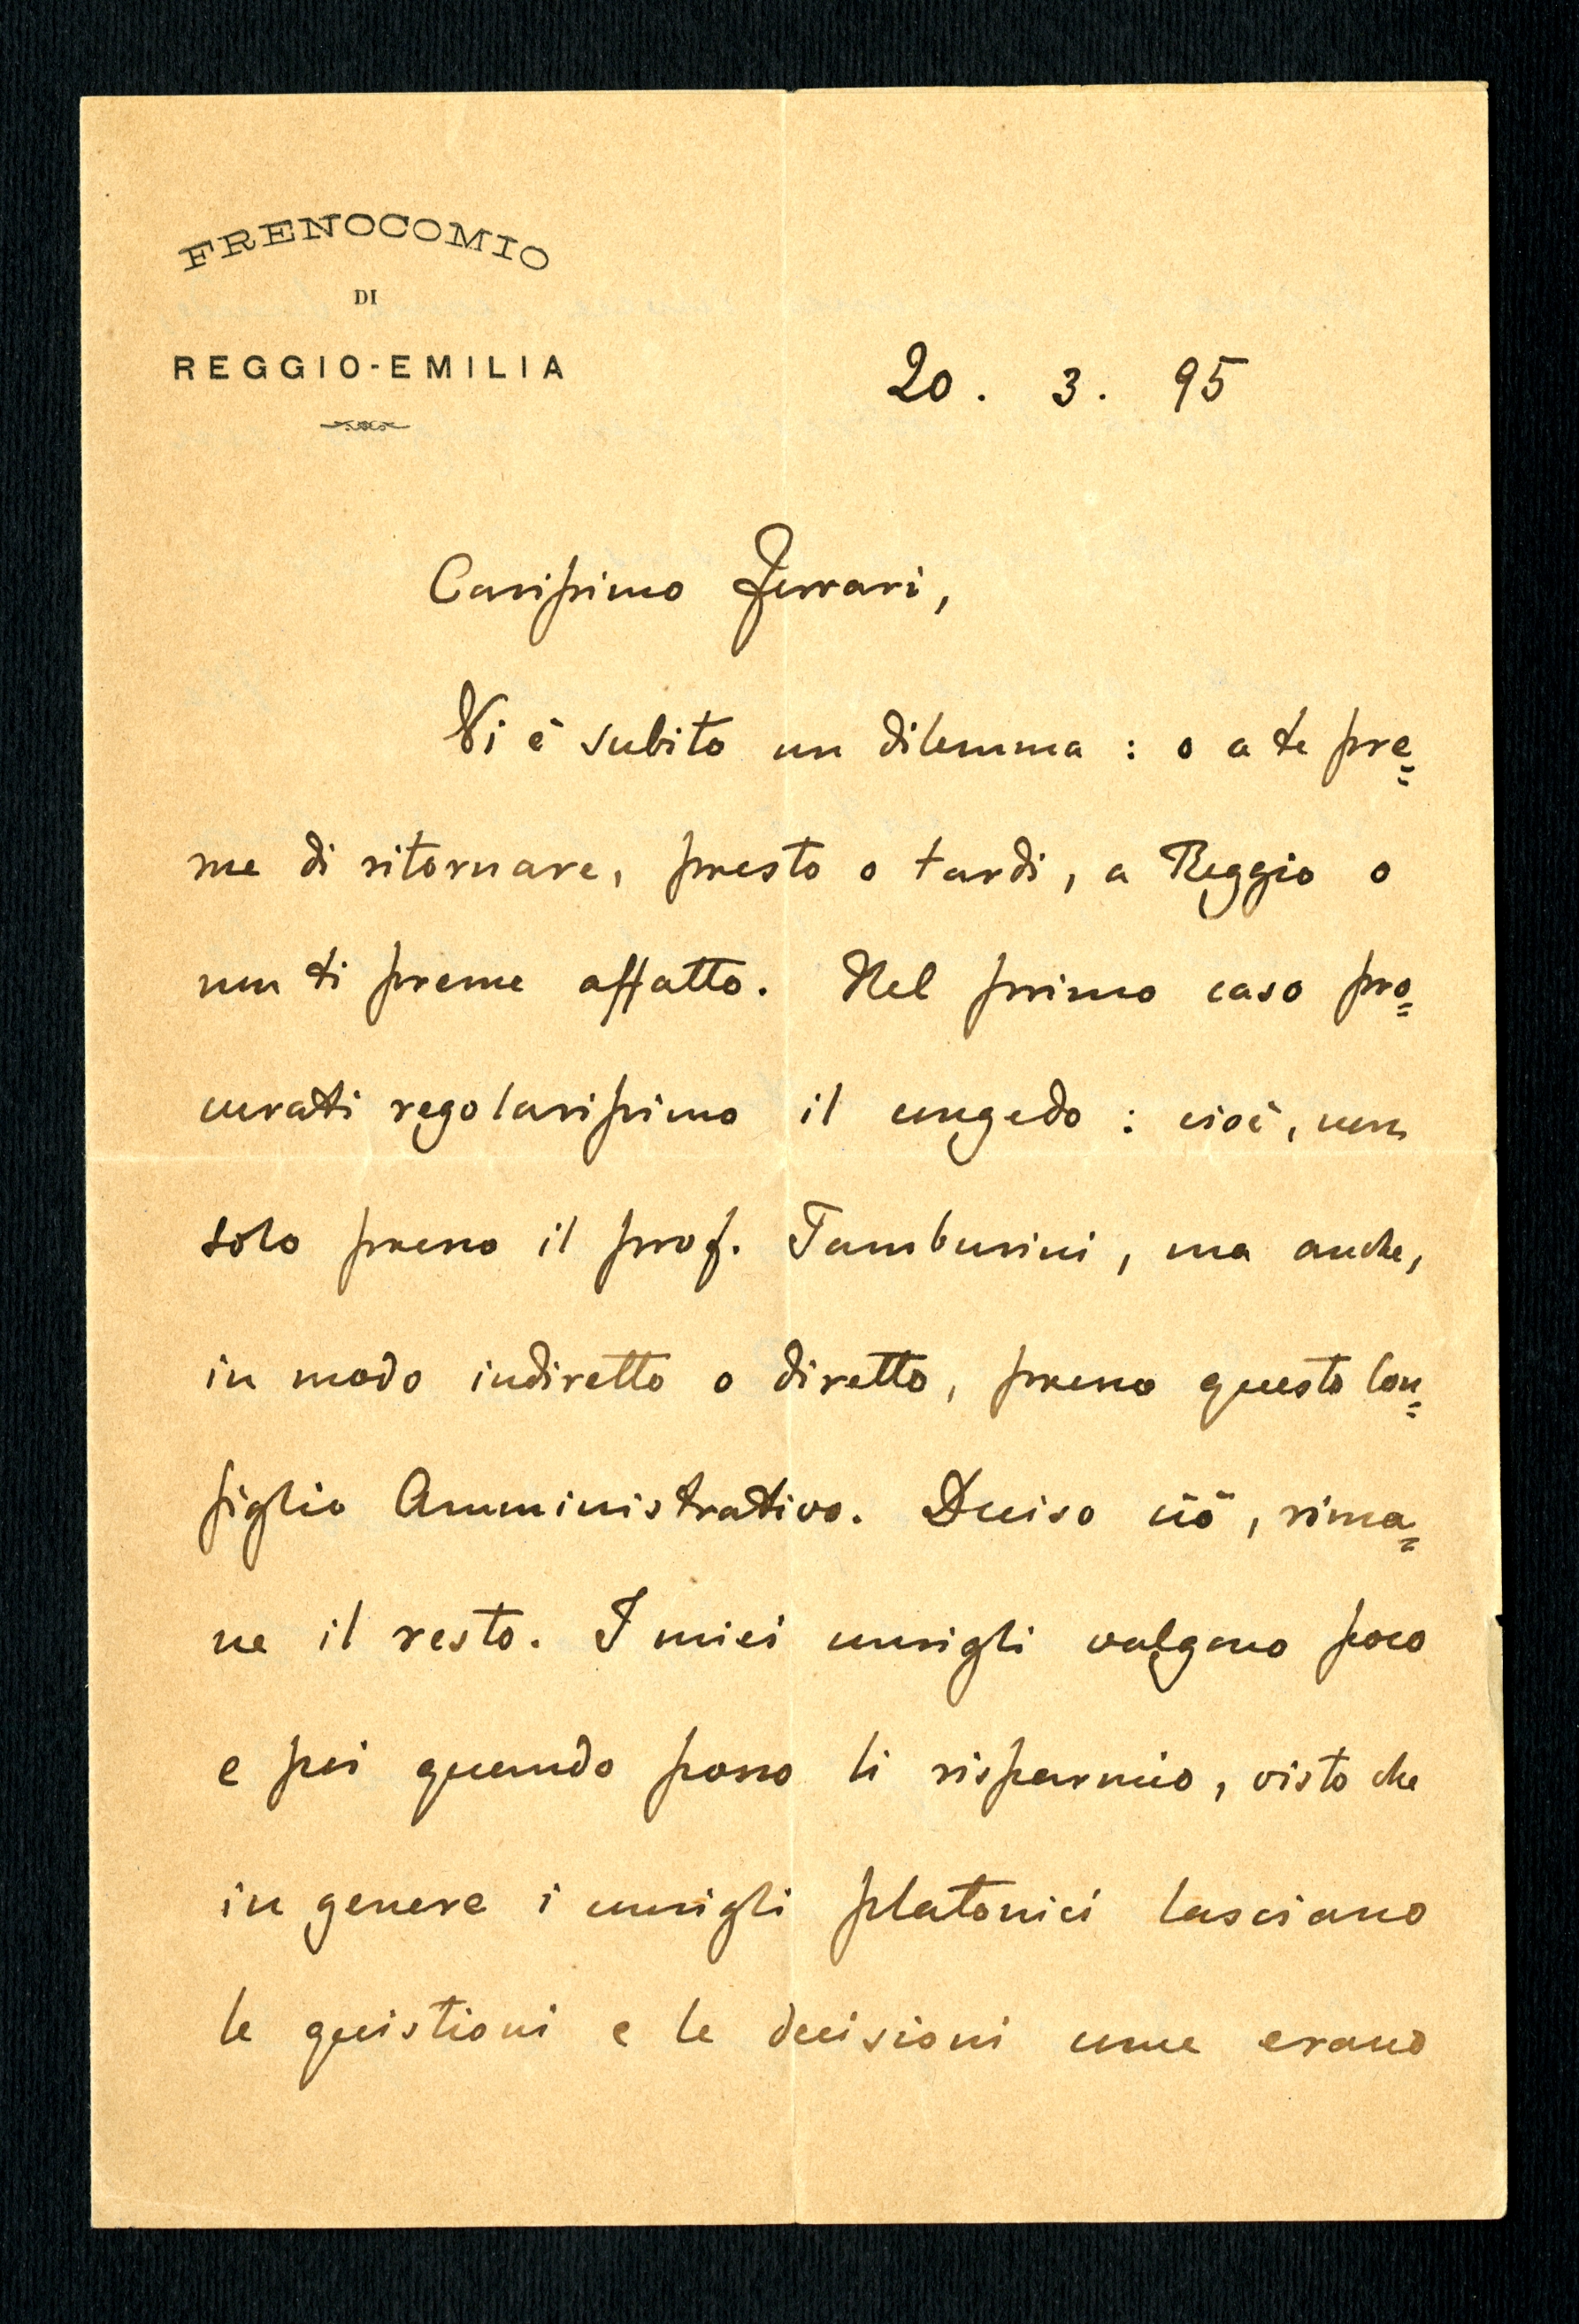 FRENOCOMIO
DI
REGGIO-EMILIA
20. 3. 95
Carissimo Ferrari,
Vi è subito un dilemma: o a te pre=
me di ritornare, presto o tardi, a Reggio o
non ti preme affatto. Nel primo caso pro=
curati regolarissimo il congedo: cioè, non
solo presso il prof. Tamburini, ma anche,
in modo indiretto o diretto, presso questo Con=
siglio Amministrativo. Deciso ciò, rima=
ne il resto. I miei consigli valgono poco
e poi quando posso li risparmio, visto che
in genere i consigli platonici lasciano
le quistioni e le decisioni come erano